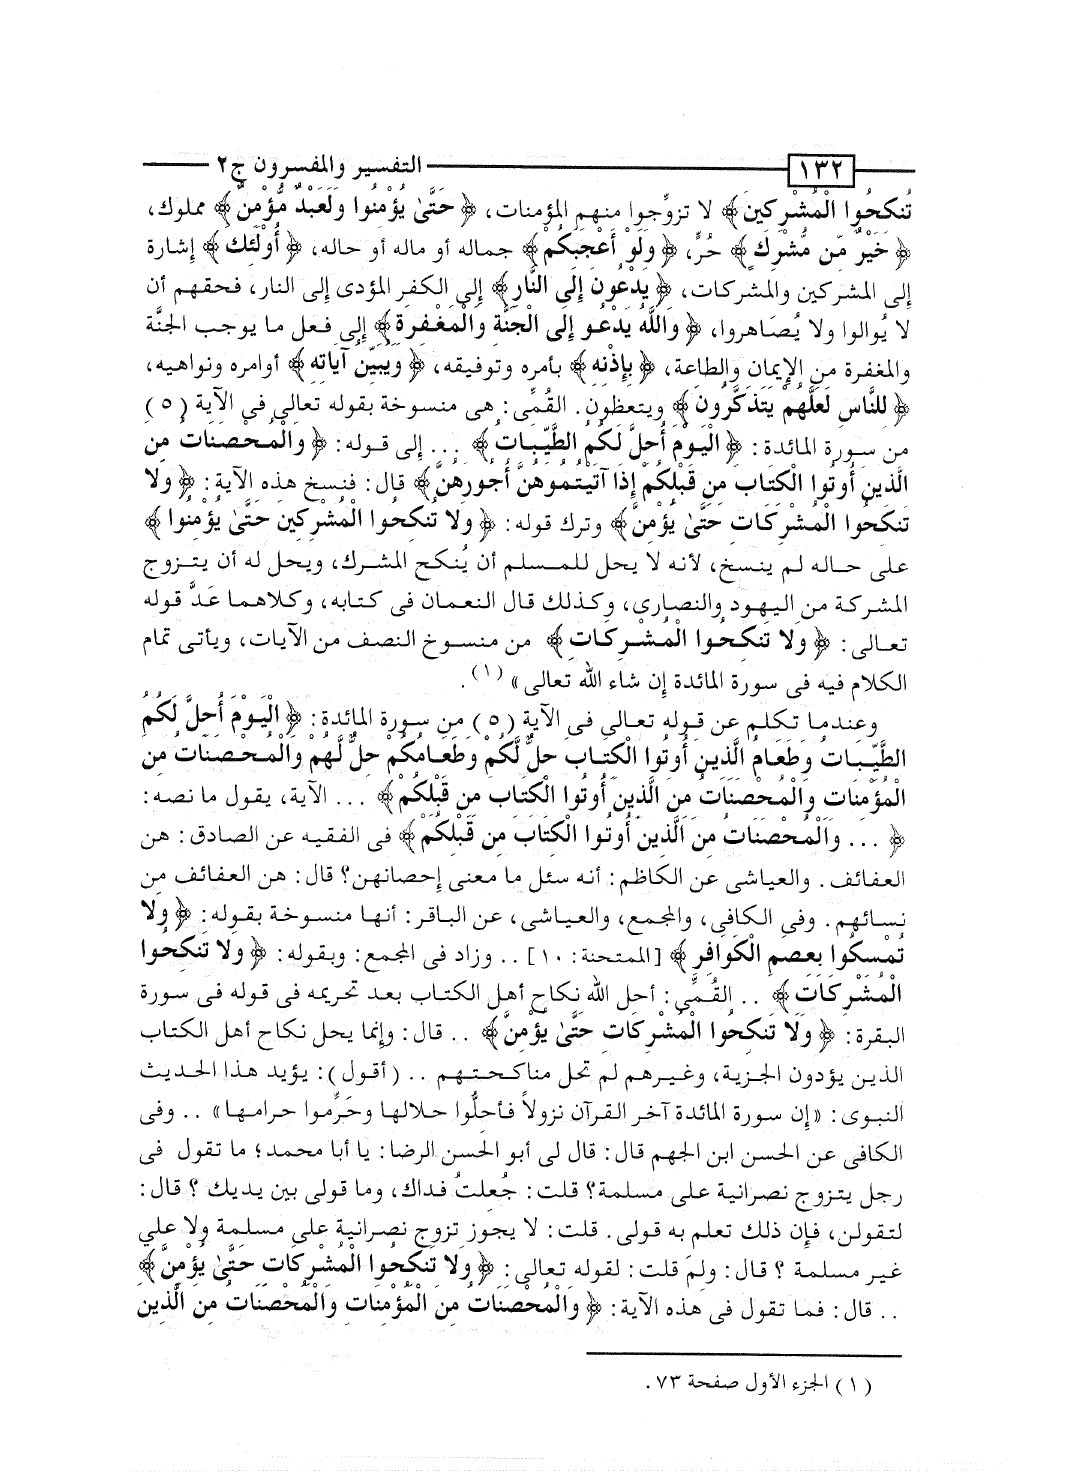 ١٣٢ التفسير والمفسرون ج٢
تُنكحُوا الْمُشْرِكِينَ﴾ لا تزوِّجوا منهم المؤمنات، ﴿حَتَّىٰ يُؤْمِنُوا وَلَعَبْدٌ مُّؤْمِنٌ﴾ مملوك،
﴿خَيْرٌ مِّن مُّشْرِكٍ﴾ حُرٍّ، ﴿وَلَوْ أَعْجَبَكُمْ﴾ جماله أو ماله أو حاله، ﴿أُوْلَٰئِكَ﴾ إشارة
إلى المشركين والمشركات، ﴿يَدْعُونَ إِلَى النَّارِ﴾ إلى الكفر المؤدى إلى النار، فحقهم أن
لا يُوالوا ولا يُصَاهروا، ﴿وَاللَّهُ يَدْعُو إِلَى الْجَنَّةِ وَالْمَغْفِرَةِ﴾ إلى فعل ما يوجب الجنَّة
والمغفرة من الإيمان والطاعة، ﴿بِإِذْنِهِ﴾ بأمره وتوفيقه، ﴿ويبيّن آياته﴾ أوامره ونواهيه،
﴿للنَّاسِ لَعَلَّهُمْ يَتَذَكَّرُونَ﴾ ويتعظون. القُمِّى: هى منسوخة بقوله تعالى فى الآية (٥)
من سورة المائدة: ﴿الْيَوْمَ أُحِلَّ لَكُمُ الطَّيِّبَاتُ﴾ ... إلى قوله: ﴿وَالْمُحْصَنَاتُ مِنَ
الَّذِينَ أُوتُوا الْكِتَابَ مِن قَبْلِكُمْ إِذَا آتَيْتُمُوهُنَّ أُجُورَهُنَّ﴾ قال: فنسخ هذه الآية: ﴿وَلا
تَنكِحُوا الْمُشْرِكَاتِ حَتَّىٰ يُؤْمِنَّ﴾ وترك قوله: ﴿وَلا تُنكِحُوا الْمُشْرِكِينَ حَتَّىٰ يُؤْمِنُوا﴾
على حاله لم ينسخ، لأنه لا يحل للمسلم أن يُنكح المشرك، ويحل له أن يتزوج
المشركة من اليهود والنصارى، وكذلك قال النعمان فى كتابه، وكلاهما عَدَّ قوله
تعالى: ﴿وَلا تَنكِحُوا الْمُشْرِكَاتِ﴾ من منسوخ النصف من الآيات، ويأتى تمام
الكلام فيه فى سورة المائدة إن شاء الله تعالى» (١).
وعندما تكلم عن قوله تعالى فى الآية (٥) من سورة المائدة: ﴿الْيَوْمَ أُحِلَّ لَكُمُ
الطَّيِّبَاتُ وَطَعَامُ الَّذِينَ أُوتُوا الْكِتَابَ حِلٌّ لَّكُمْ وَطَعَامُكُمْ حِلٌّ لَّهُمْ وَالْمُحْصَنَاتُ مِنَ
الْمُؤْمِنَاتِ وَالْمُحْصَنَاتُ مِنَ الَّذِينَ أُوتُوا الْكِتَابَ مِن قَبْلِكُمْ﴾ ... الآية، يقول ما نصه:
﴿... وَالْمُحْصَنَاتُ مِنَ الَّذِينَ أُوتُوا الْكِتَابَ مِن قَبْلِكُمْ﴾ فى الفقيه عن الصادق: هن
العفائف. والعياشى عن الكاظم: أنه سئل ما معنى إحصانهن؟ قال: هن العفائف من
نسائهم. وفى الكافى، والمجمع، والعياشى، عن الباقر: أنها منسوخة بقوله: ﴿وَلا
تُمْسِكُوا بِعِصَمِ الْكَوَافِرِ﴾ [الممتحنة: ١٠].. وزاد فى المجمع: وبقوله: ﴿وَلا تَنكِحُوا
الْمُشْرِكَاتِ﴾ .. القُمِّى: أحل الله نكاح أهل الكتاب بعد تحريمه فى قوله فى سورة
البقرة: ﴿وَلا تَنكِحُوا الْمُشْرِكَاتِ حَتَّىٰ يُؤْمِنَّ﴾ .. قال: وإنما يحل نكاح أهل الكتاب
الذين يؤدون الجزية، وغيرهم لم تحل مناكحتهم .. (أقول): يؤيد هذا الحديث
النبوى: «إن سورة المائدة آخر القرآن نزولاً فأحلُّوا حلالها وحَرِّموا حرامها» .. وفى
الكافى عن الحسن ابن الجهم قال: قال لى أبو الحسن الرضا: يا أبا محمد؛ ما تقول فى
رجل يتزوج نصرانية على مسلمة؟ قلت: جُعلتُ فداك، وما قولى بين يديك؟ قال:
لتقولن، فإن ذلك تعلم به قولى. قلت: لا يجوز تزوج نصرانية على مسلمة ولا على
غير مسلمة؟ قال: ولمَ قلت: لقوله تعالى: ﴿وَلا تَنكِحُوا الْمُشْرِكَاتِ حَتَّىٰ يُؤْمِنَّ﴾
.. قال: فما تقول فى هذه الآية: ﴿وَالْمُحْصَنَاتُ مِنَ الْمُؤْمِنَاتِ وَالْمُحْصَنَاتُ مِنَ الَّذِينَ
(١) الجزء الأول صفحة ٧٣.